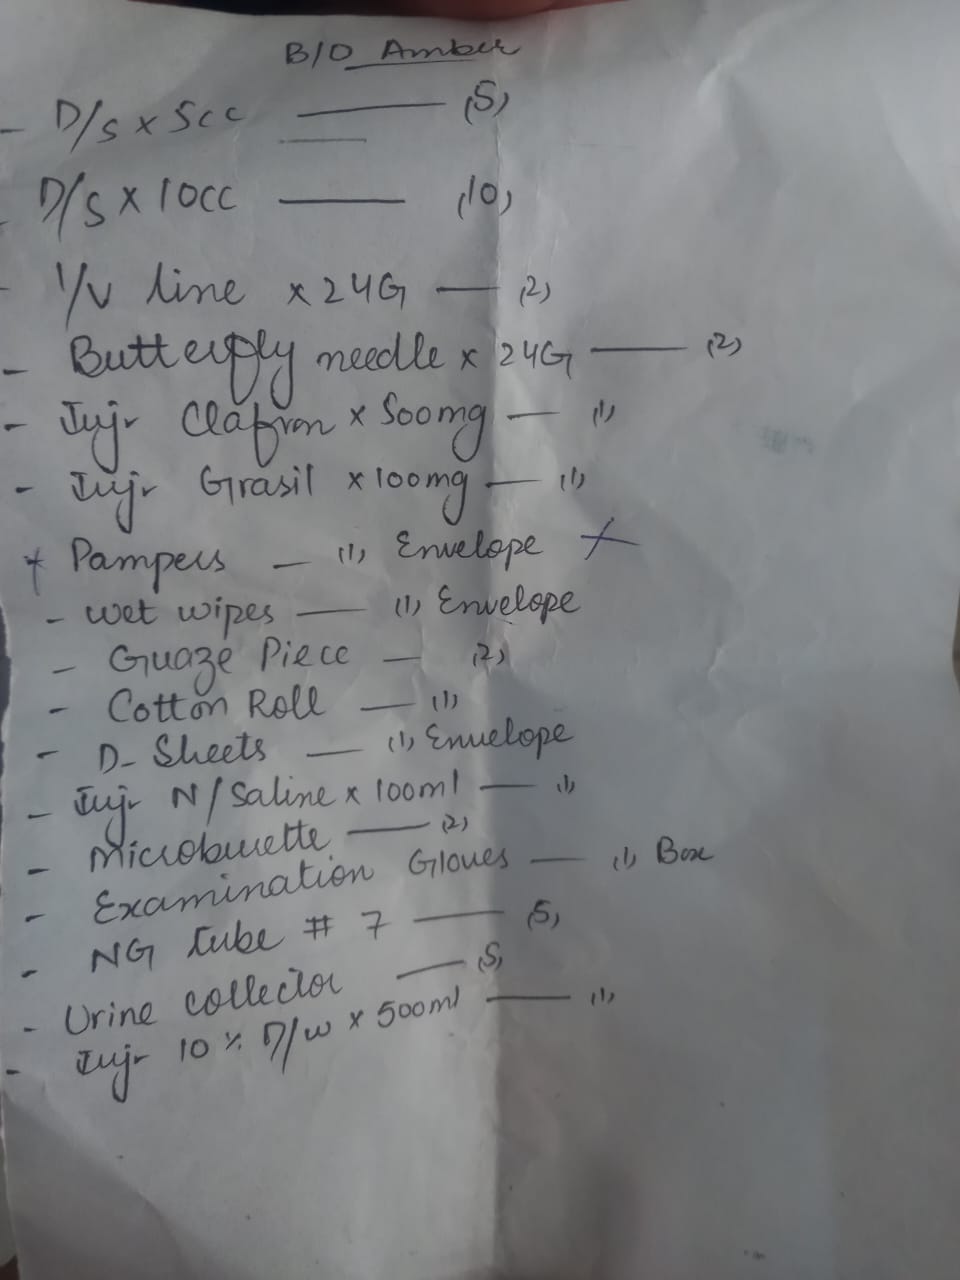 B/O Amber
- D/s x 5cc — (5)
- D/s x 10cc — (10)
- I/V line x 24G — (2)
- Butterfly needle x 24G — (2)
- Inj- Clafron x 500mg — (1)
- Inj- Grasil x 100mg — (1)
+ Pampers — (1) Envelope x
- Wet wipes — (1) Envelope
- Guaze Piece — (2)
- Cotton Roll — (1)
- D-Sheets — (1) Envelope
- Inj- N/Saline x 100ml — (1)
- Microburette — (2)
- Examination Gloves — (1) Box
- NG tube # 7 — (5)
- Urine collector — (5)
- Inj- 10% D/w x 500ml — (1)